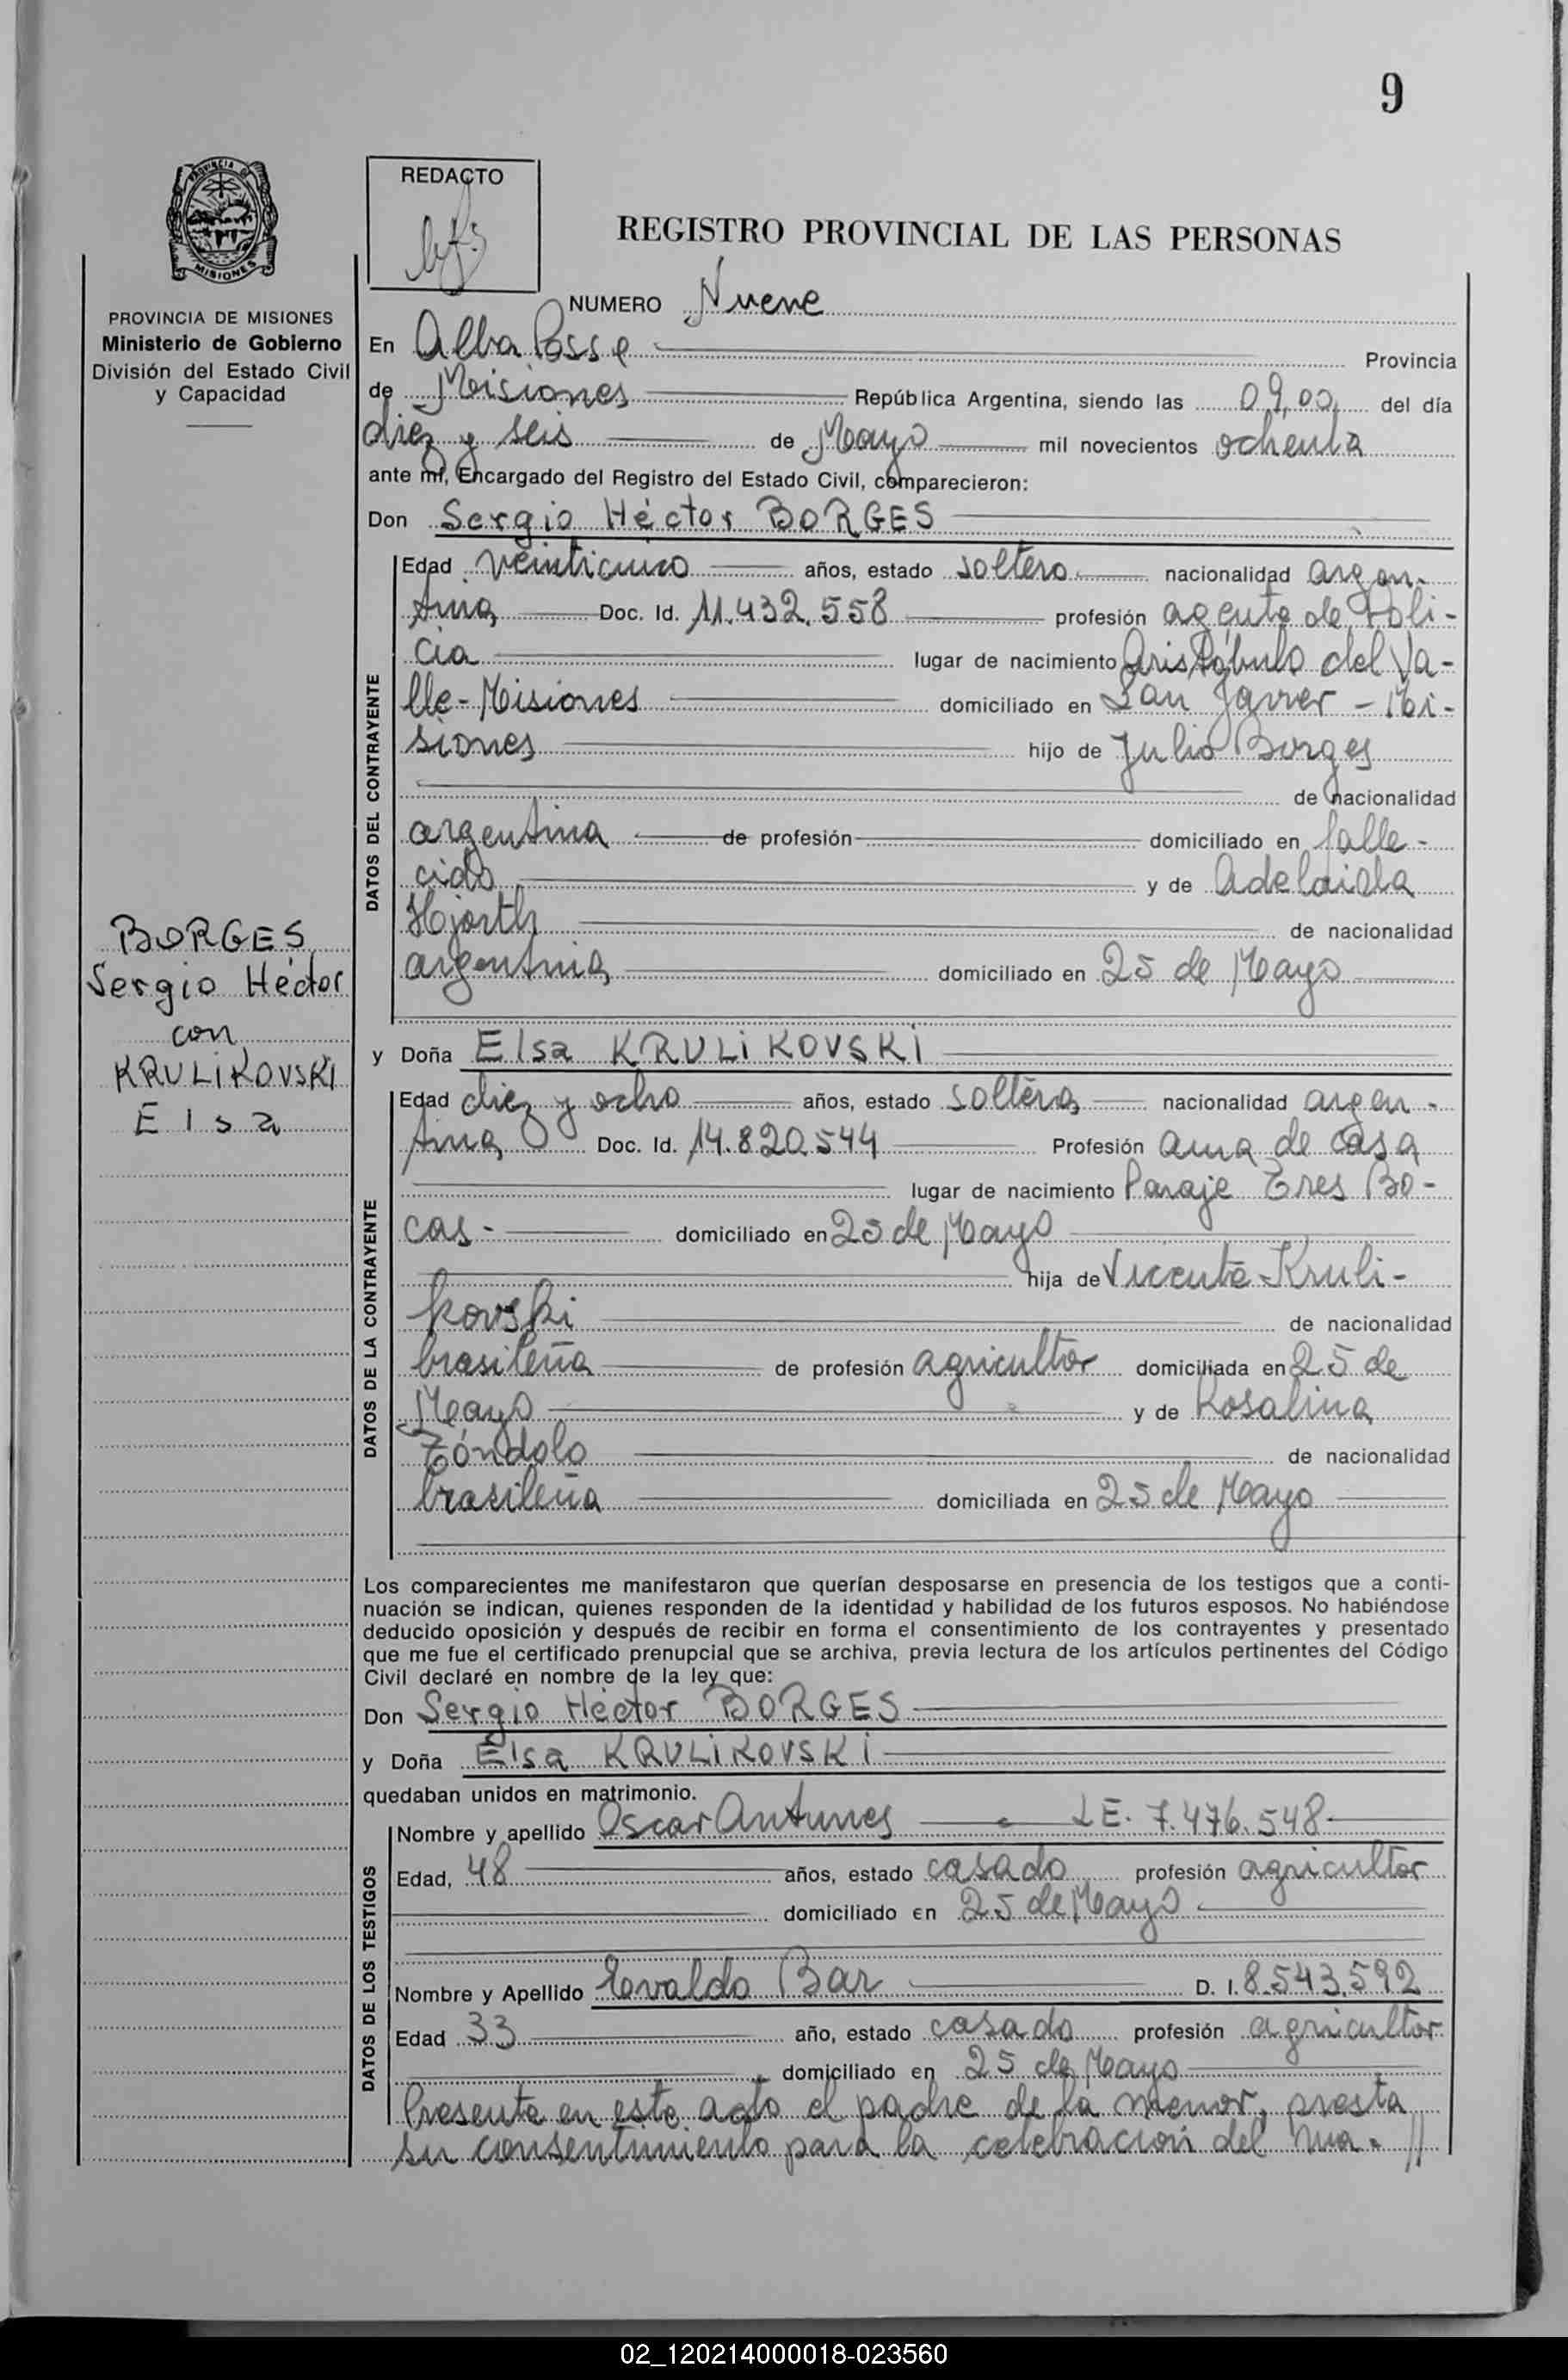 9
PROVINCIA DE
MISIONES
REDACTO
REGISTRO PROVINCIAL DE LAS PERSONAS
PROVINCIA DE MISIONES
Ministerio de Gobierno
División del Estado Civil
y Capacidad
NUMERO Nueve
En Alba Posse Provincia
de Misiones República Argentina, siendo las 09,00 del día
diez y seis de Mayo mil novecientos ochenta
ante mí, Encargado del Registro del Estado Civil, comparecieron:
Don Sergio Héctor BORGES
DATOS DEL CONTRAYENTE
Edad veinticinco años, estado soltero nacionalidad argen-
tina Doc. Id. 11.432.558 profesión agente de Poli-
cia lugar de nacimiento Aristóbulo del Va-
lle-Misiones domiciliado en San Javier - Mi-
siones hijo de Julio Borges
de nacionalidad
argentina de profesión domiciliado en falle-
cido y de Adelaida
Hjorth de nacionalidad
argentina domiciliado en 25 de Mayo
BORGES
Sergio Héctor
con
KRULIKOVSKI
Elsa
y Doña Elsa KRULIKOVSKI
DATOS DE LA CONTRAYENTE
Edad diez y ocho años, estado soltera nacionalidad argen-
tina Doc. Id. 14.820.544 Profesión ama de casa
lugar de nacimiento Paraje Tres Bo-
cas- domiciliado en 25 de Mayo
hija de Vicente Kruli-
kovski de nacionalidad
brasileña de profesión agricultor domiciliada en 25 de
Mayo y de Rosalina
Zóndolo de nacionalidad
brasileña domiciliada en 25 de Mayo
Los comparecientes me manifestaron que querían desposarse en presencia de los testigos que a conti-
nuación se indican, quienes responden de la identidad y habilidad de los futuros esposos. No habiéndose
deducido oposición y después de recibir en forma el consentimiento de los contrayentes y presentado
que me fue el certificado prenupcial que se archiva, previa lectura de los artículos pertinentes del Código
Civil declaré en nombre de la ley que:
Don Sergio Héctor BORGES
y Doña Elsa KRULIKOVSKI
quedaban unidos en matrimonio.
DATOS DE LOS TESTIGOS
Nombre y apellido Oscar Antunes LE. 7.476.548
Edad, 48 años, estado casado profesión agricultor
domiciliado en 25 de Mayo
Nombre y Apellido Evaldo Bar D. I. 8.543.592
Edad 33 año, estado casado profesión agricultor
domiciliado en 25 de Mayo
Presente en este acto el padre de la menor, presta
su consentimiento para la celebración del ma- //
02_120214000018-023560